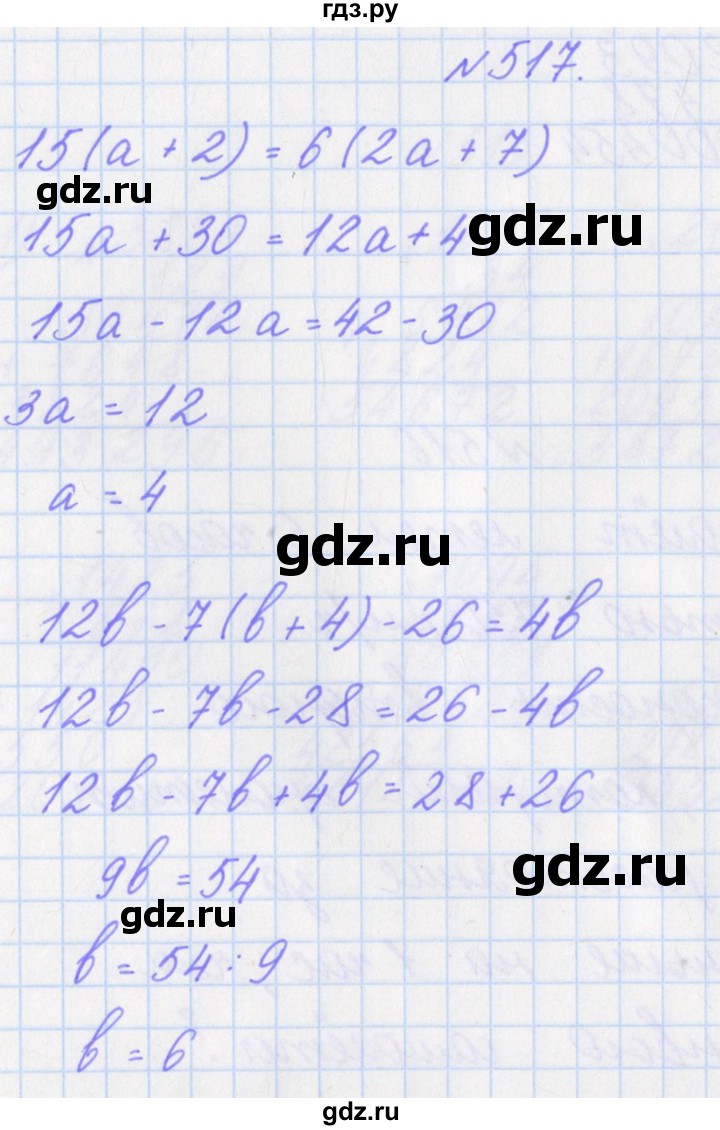 гдз.ру
№517.
15(a + 2) = 6(2a + 7)
gdz.ru
15a + 30 = 12a + 4
gdz.ru
15a - 12a = 42 - 30
3a = 12
a = 4
gdz.ru
12в - 7(в + 4) - 26 = 4в
12в - 7в - 28 = 26 - 4в
12в - 7в + 4в = 28 + 26
gdz.ru
9в = 54
gdz.ru
в = 54 : 9
в = 6
gdz.ru